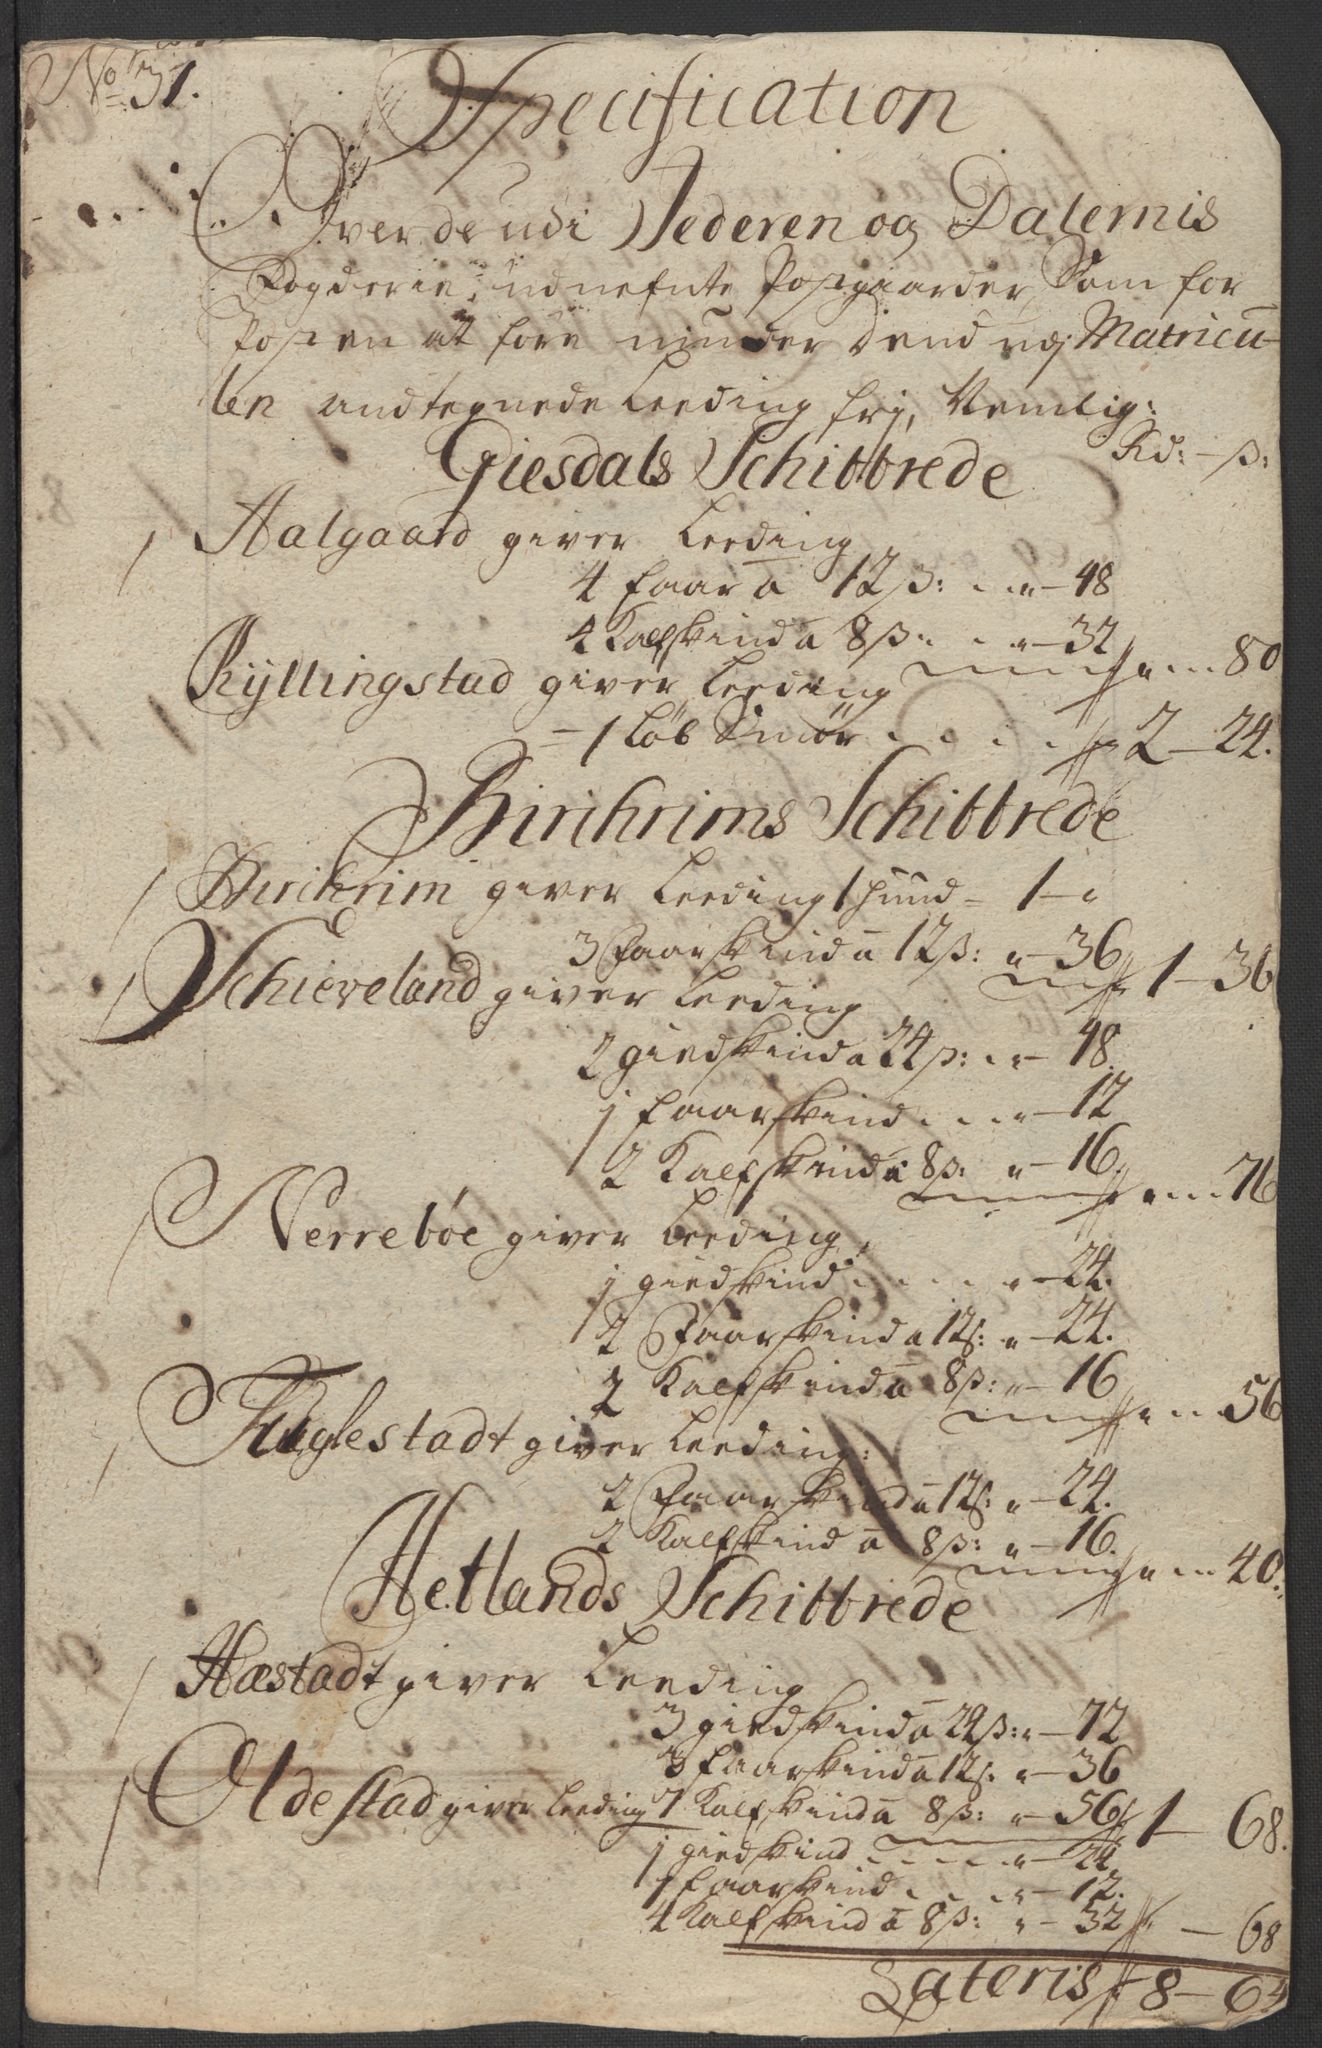 No 31.
Specification
Over de udi Jederen og Dalernis
Fogderie, udnefnte Postgaarder, Som for
Posten at føre niuder dend udj Matricu-
len andtegnede Leeding frj, Nemlig:
Rd: - ß:
Giesdals Schibbrede
Aalgaard giver Leeding
4 faar a 12 ß: . . „ - 48
4 Kalfskind a 8 ß: . . „ - 32 „ 80
Kyllingstad giver Leeding
= 1 Løb Smør . . . . 2 - 24.
Birihrims Schibbrede
Birihrim giver Leeding 1 hund - 1 - „
3 Faarskind a 12 ß: „ - 36 1 - 36
Schieveland giver Leeding
2 giedskind a 24 ß: . „ - 48.
1 faarskind . . . „ - 12
2 Kalfskind a 8 ß: „ - 16. „ 76
Nerrebøe giver Leeding,
1 giedskind . . . . „ - 24.
2 Faarskind a 12 ß: „ - 24.
2 Kalfskind a 8 ß: „ - 16 „ 56
Fuglestadt giver Leeding:
2 Faarskind a 12 ß: „ - 24.
2 Kalfskind a 8 ß: „ - 16. „ 40.
Hetlands Schibbrede
Hæstadt giver Leeding
3 giedskind a 24 ß: „ - 72
3 faarskind a 12 ß. „ - 36
7 Kalfskind a 8 ß: „ - 56 1 - 68.
Oldestad giver Leeding
1 giedskind . . . . „ - 24.
1 faarskind . . . „ - 12.
4 Kalfskind a 8 ß: „ - 32 - 68
Lateris 8 - 64